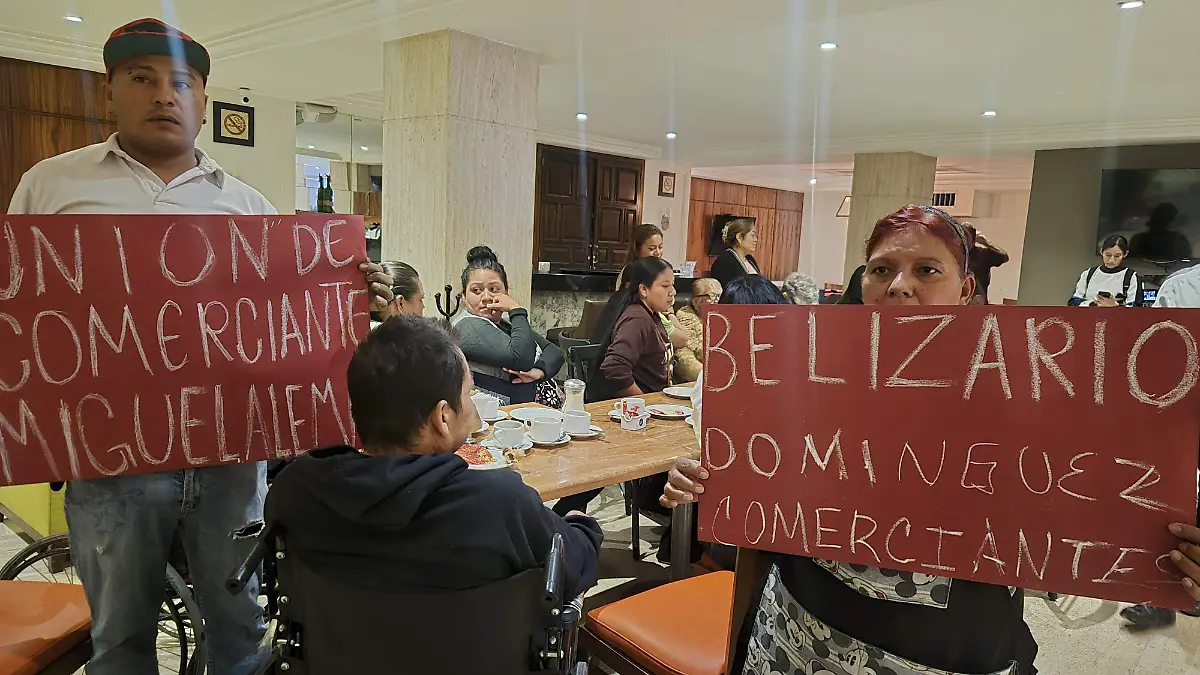 UNION" DE
COMERCIANTE
MIGUEL ALEM
BELIZARIO
DOMINGUEZ
COMERCIANTES